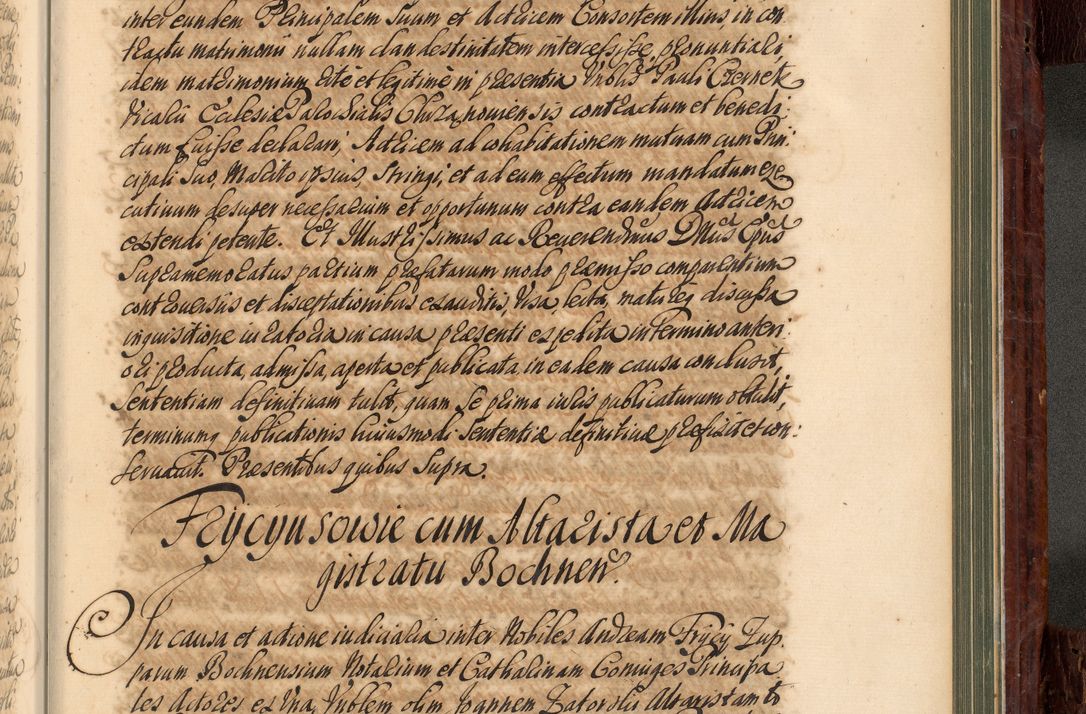 inter eundem Principalem suum et Actricem Consortem illius, in con
tractu matrimonii nullam clandestinitatem intercessisse, pronuntiari,
idem matrimonium ritè et legitimè in præsentia Vnblis Pauli Czernek
Vicarii Ecclesiæ Parochialis Chrzanoviensis contractum et benedi
ctum fuisse declarari, Actricem ad cohabitationem mutuam cum Prin:
cipali suo, Marito ipsius, stringi, et ad eum effectum mandatum exe
cutivum desuper necessarium et opportunum contra eandem Actricem
extendi petente. Et Illustrissimus ac Reverendmus Dnus Epus
supramemoratus partium præfatarum modo præmisso comparentium
controversiis et disceptationibus exauditis, visa, lecta, matureq discussa
inquisitione iuratoria in causa præsenti expedita in termino anteri:
ori producta, admissa, aperta et publicata, in eadem causa conclusit,
sententiam definitivam tulit, quam se prima iuris publicaturum obtulit,
terminumq publicationis huiusmodi sententiæ definitivæ præfixit et con:
servavit. Præsentibus quibus supra.
Frycyusowie cum Altarista et Ma
gistratu Bochnen.
In causa et actione iudiciaria inter Nobiles Andream Frycy Zup
parum Bochnensium Notarium et Catharinam Coniuges Principa
les Actores ex una, Vnblem olim Joannem Zatorski Altaristam t